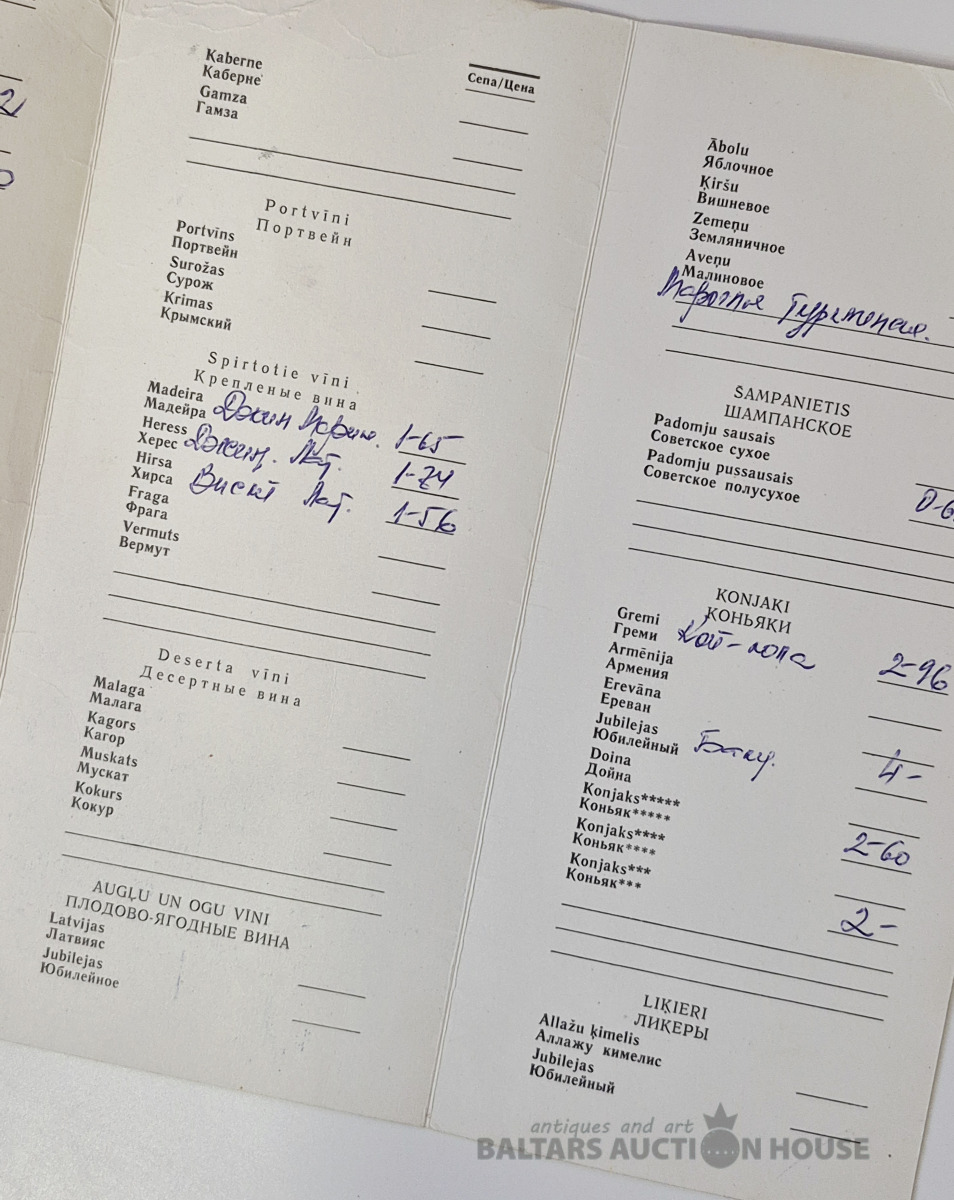 2
Kaberne
Каберне
Gamza
Гамза
Cena/Цена
Portvīni
Портвейн
Portvīns
Портвейн
Surožas
Сурож
Krimas
Крымский
Spirtotie vīni
Крепленые вина
Madeira
Мадейра Джин 1-65
Heress
Херес Лат. 1-74
Hirsa
Хирса Виски Лат. 1-56
Fraga
Фрага
Vermuts
Вермут
Deserta vīni
Десертные вина
Malaga
Малага
Kagors
Кагор
Muskats
Мускат
Kokurs
Кокур
AUGĻU UN OGU VINI
ПЛОДОВО-ЯГОДНЫЕ ВИНА
Latvijas
Латвияс
Jubilejas
Юбилейное
Ābolu
Яблочное
Ķiršu
Вишневое
Zemeņu
Земляничное
Aveņu
Малиновое
ŠAMPANIETIS
ШАМПАНСКОЕ
Padomju sausais
Советское сухое
Padomju pussausais
Советское полусухое 0-6
KONJAKI
КОНЬЯКИ
Gremi
Греми 2-96
Armēnija
Армения
Erevāna
Ереван
Jubilejas
Юбилейный 4-
Doina
Дойна
Konjaks*****
Коньяк***** 2-60
Konjaks****
Коньяк****
Konjaks***
Коньяк*** 2-
LIĶIERI
ЛИКЕРЫ
Allažu ķimelis
Аллажу кимелис
Jubilejas
Юбилейный
antiques and art
BALTARS AUCTION HOUSE